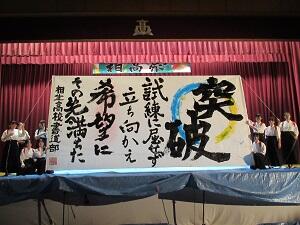 相高祭
突破
試練に屈せず
立ち向かえ
希望に
その先満ちた
相生高校書道部